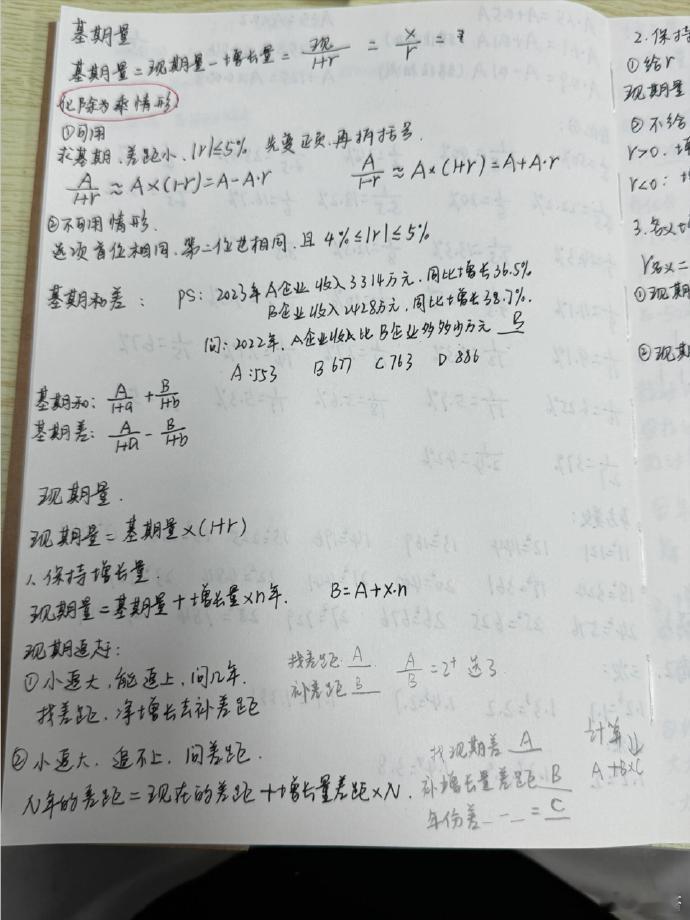 基期量
基期量=现期量-增长量= 现/1+r = x/r =
化除为乘情形
①可用
求基期、差距小、|r|≤5% 先变正负,再折括号.
A/1+r ≈ A×(1-r)=A-A·r A/1-r ≈ A×(1+r)=A+A·r
②不可用情形.
选项首位相同,第二位也相同,且 4%≤|r|≤5%
基期和差: PS: 2023年A企业收入3314万元,同比增长36.5%.
B企业收入2428万元,同比增长38.7%.
问:2022年,A企业收入比B企业多多少万元 B
A:553 B 677 C 763 D.886
基期和: A/1+a + B/1+b
基期差: A/1+a - B/1+b
现期量.
现期量=基期量×(1+r)
1.保持增长量.
现期量=基期量+增长量×n年. B=A+x·n
现期追赶:
①小追大,能追上,问几年. 找差距 A A/B =2⁺ 选3
找差距,净增长去补差距 补差距 B
②小追大,追不上,问差距. 找现期差 A 计算
N年的差距=现在的差距+增长量差距×N. 补增长量差距 B A+B×C
年份差_-_=C
2.保持
①给r
现期量
②不给
r>0.增
r<0:
3.名义增
r名义=
①现期
②现期